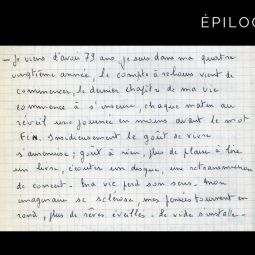 ÉPILOG
— Je viens d'avoir 79 ans, je suis dans ma quatre
vingtième année, le compte à rebours vient de
commencer, le dernier chapitre de ma vie
commence à s'inscrire, chaque matin au
réveil une journée en moins avant le mot
FIN. Insidieusement le goût de vivre
s'amenuise ; goût à rien, plus de plaisir à lire
un livre, écouter un disque, une retransmission
de concert. Ma vie perd son sens. Mon
imaginaire se sclérose, mes pensées tournent en
rond, plus de rêves éveillés. Le vide s'installe.